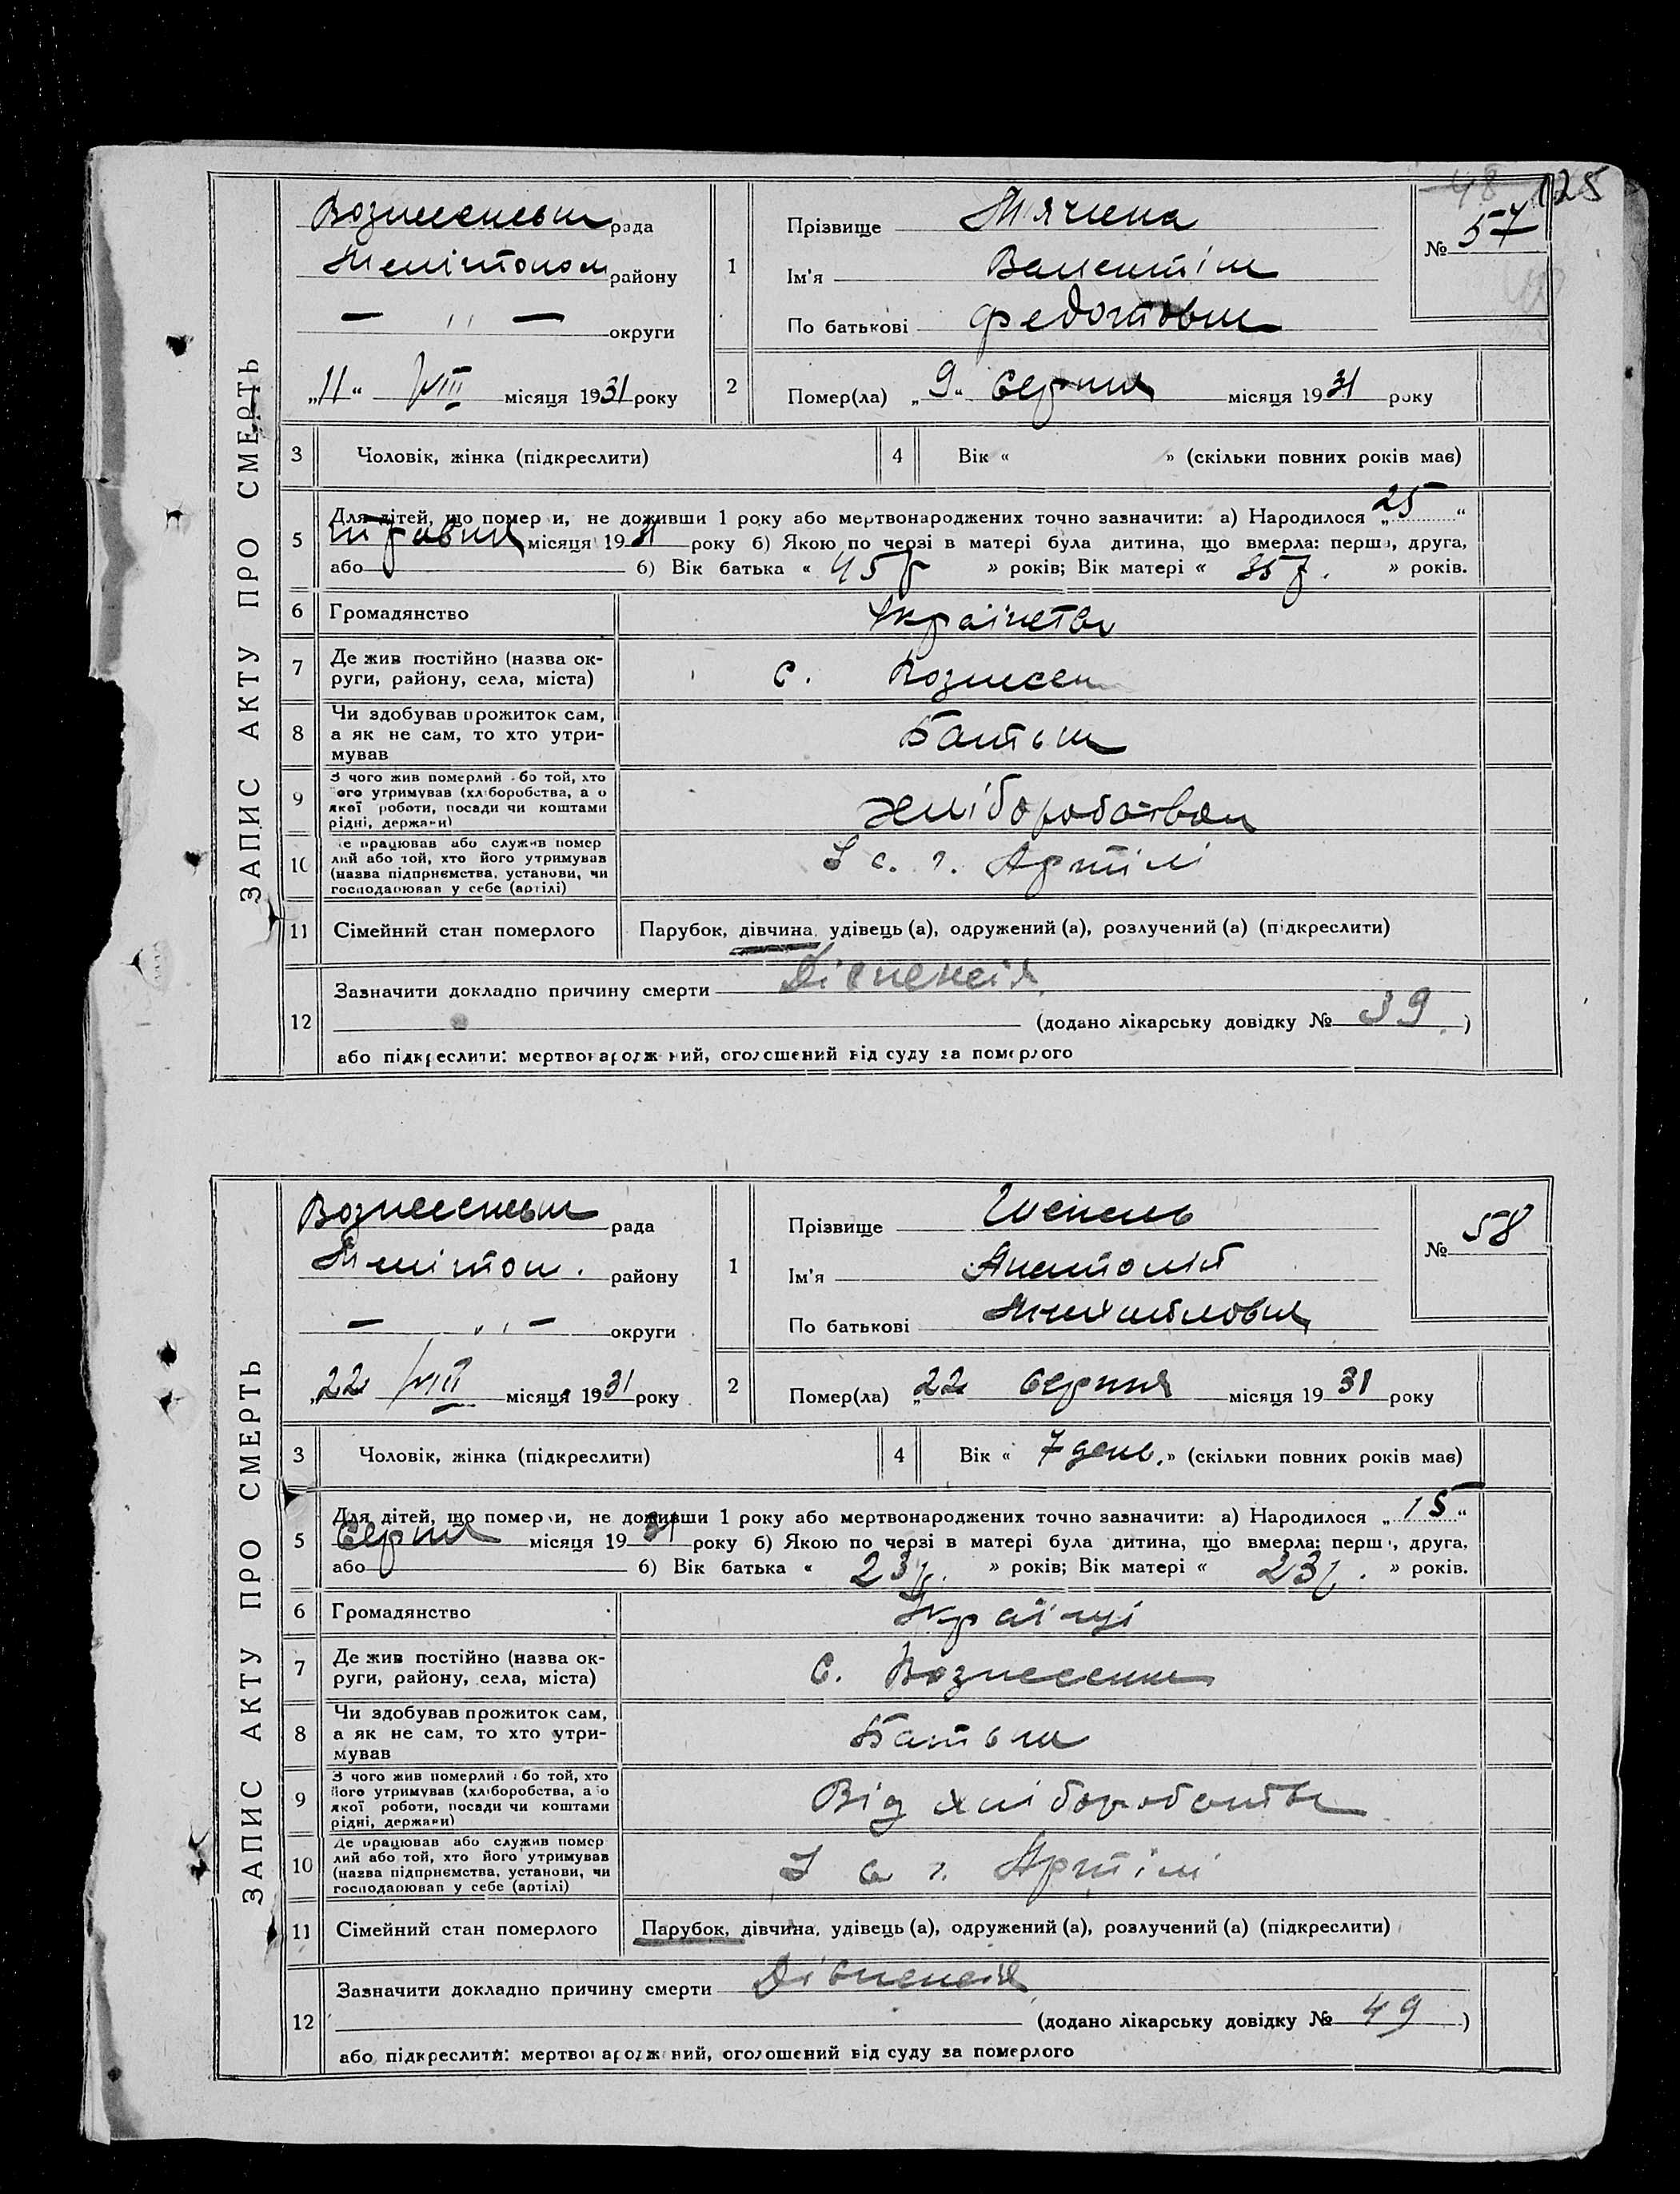 48 125
ЗАПИС АКТУ ПРО СМЕРТЬ
рада
району
— " — округи
„11“ VIII місяця 1931 року
1
Прізвище
Ім'я Валентіна
По батькові Федотовна
№ 57
2
Помер(ла) „9“ Серпня місяця 1931 року
3 Чоловік, жінка (підкреслити)
4 Вік « » (скільки повних років має)
5 Для дітей, що померли, не доживши 1 року або мертвонароджених точно зазначити: а) Народилося „25“
травня місяця 1931 року б) Якою по черзі в матері була дитина, що вмерла: перша, друга,
або б) Вік батька « 45 р » років; Вік матері « 35 р. » років.
6 Громадянство
7 Де жив постійно (назва ок-
руги, району, села, міста)
с. Вознесен
8 Чи здобував прожиток сам,
а як не сам, то хто утри-
мував
Батьки
9 З чого жив померлий або той, хто
його утримував (хліборобства, а о
якої роботи, посади чи коштами
рідні, держави)
10 Де працював або служив помер
лий або той, хто його утримував
(назва підприємства, установи, чи
господарював у себе (артілі)
с. г. Артілі
11 Сімейний стан померлого
Парубок, дівчина, удівець (а), одружений (а), розлучений (а) (підкреслити)
12 Зазначити докладно причину смерти Діспенсія
(додано лікарську довідку № 39)
або підкреслити: мертвонароджений, оголошений від суду за померлого
ЗАПИС АКТУ ПРО СМЕРТЬ
рада
району
— " — округи
„22 VIII місяця 1931 року
1
Прізвище
Ім'я Анатолій
По батькові
№ 58
2
Помер(ла) „22 Серпня місяця 1931 року
3 Чоловік, жінка (підкреслити)
4 Вік « 7 день. » (скільки повних років має)
5 Для дітей, що померли, не доживши 1 року або мертвонароджених точно зазначити: а) Народилося „15“
Серпня місяця 1931 року б) Якою по черзі в матері була дитина, що вмерла: перша, друга,
або б) Вік батька « 23 р. » років; Вік матері « 23 р. » років.
6 Громадянство Українці
7 Де жив постійно (назва ок-
руги, району, села, міста)
с. Вознесенка
8 Чи здобував прожиток сам,
а як не сам, то хто утри-
мував
Батьки
9 З чого жив померлий або той, хто
його утримував (хліборобства, а о
якої роботи, посади чи коштами
рідні, держави)
Від
10 Де працював або служив помер
лий або той, хто його утримував
(назва підприємства, установи, чи
господарював у себе (артілі)
с г. Артілі
11 Сімейний стан померлого
Парубок, дівчина, удівець (а), одружений (а), розлучений (а) (підкреслити)
12 Зазначити докладно причину смерти Діспенсія
(додано лікарську довідку № 49)
або підкреслити: мертвонароджений, оголошений від суду за померлого